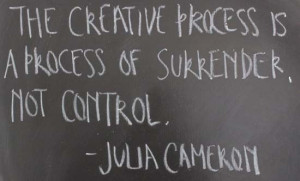 THE CREATIVE PROCESS IS
A PROCESS OF SURRENDER,
NOT CONTROL.
-JULIA CAMERON